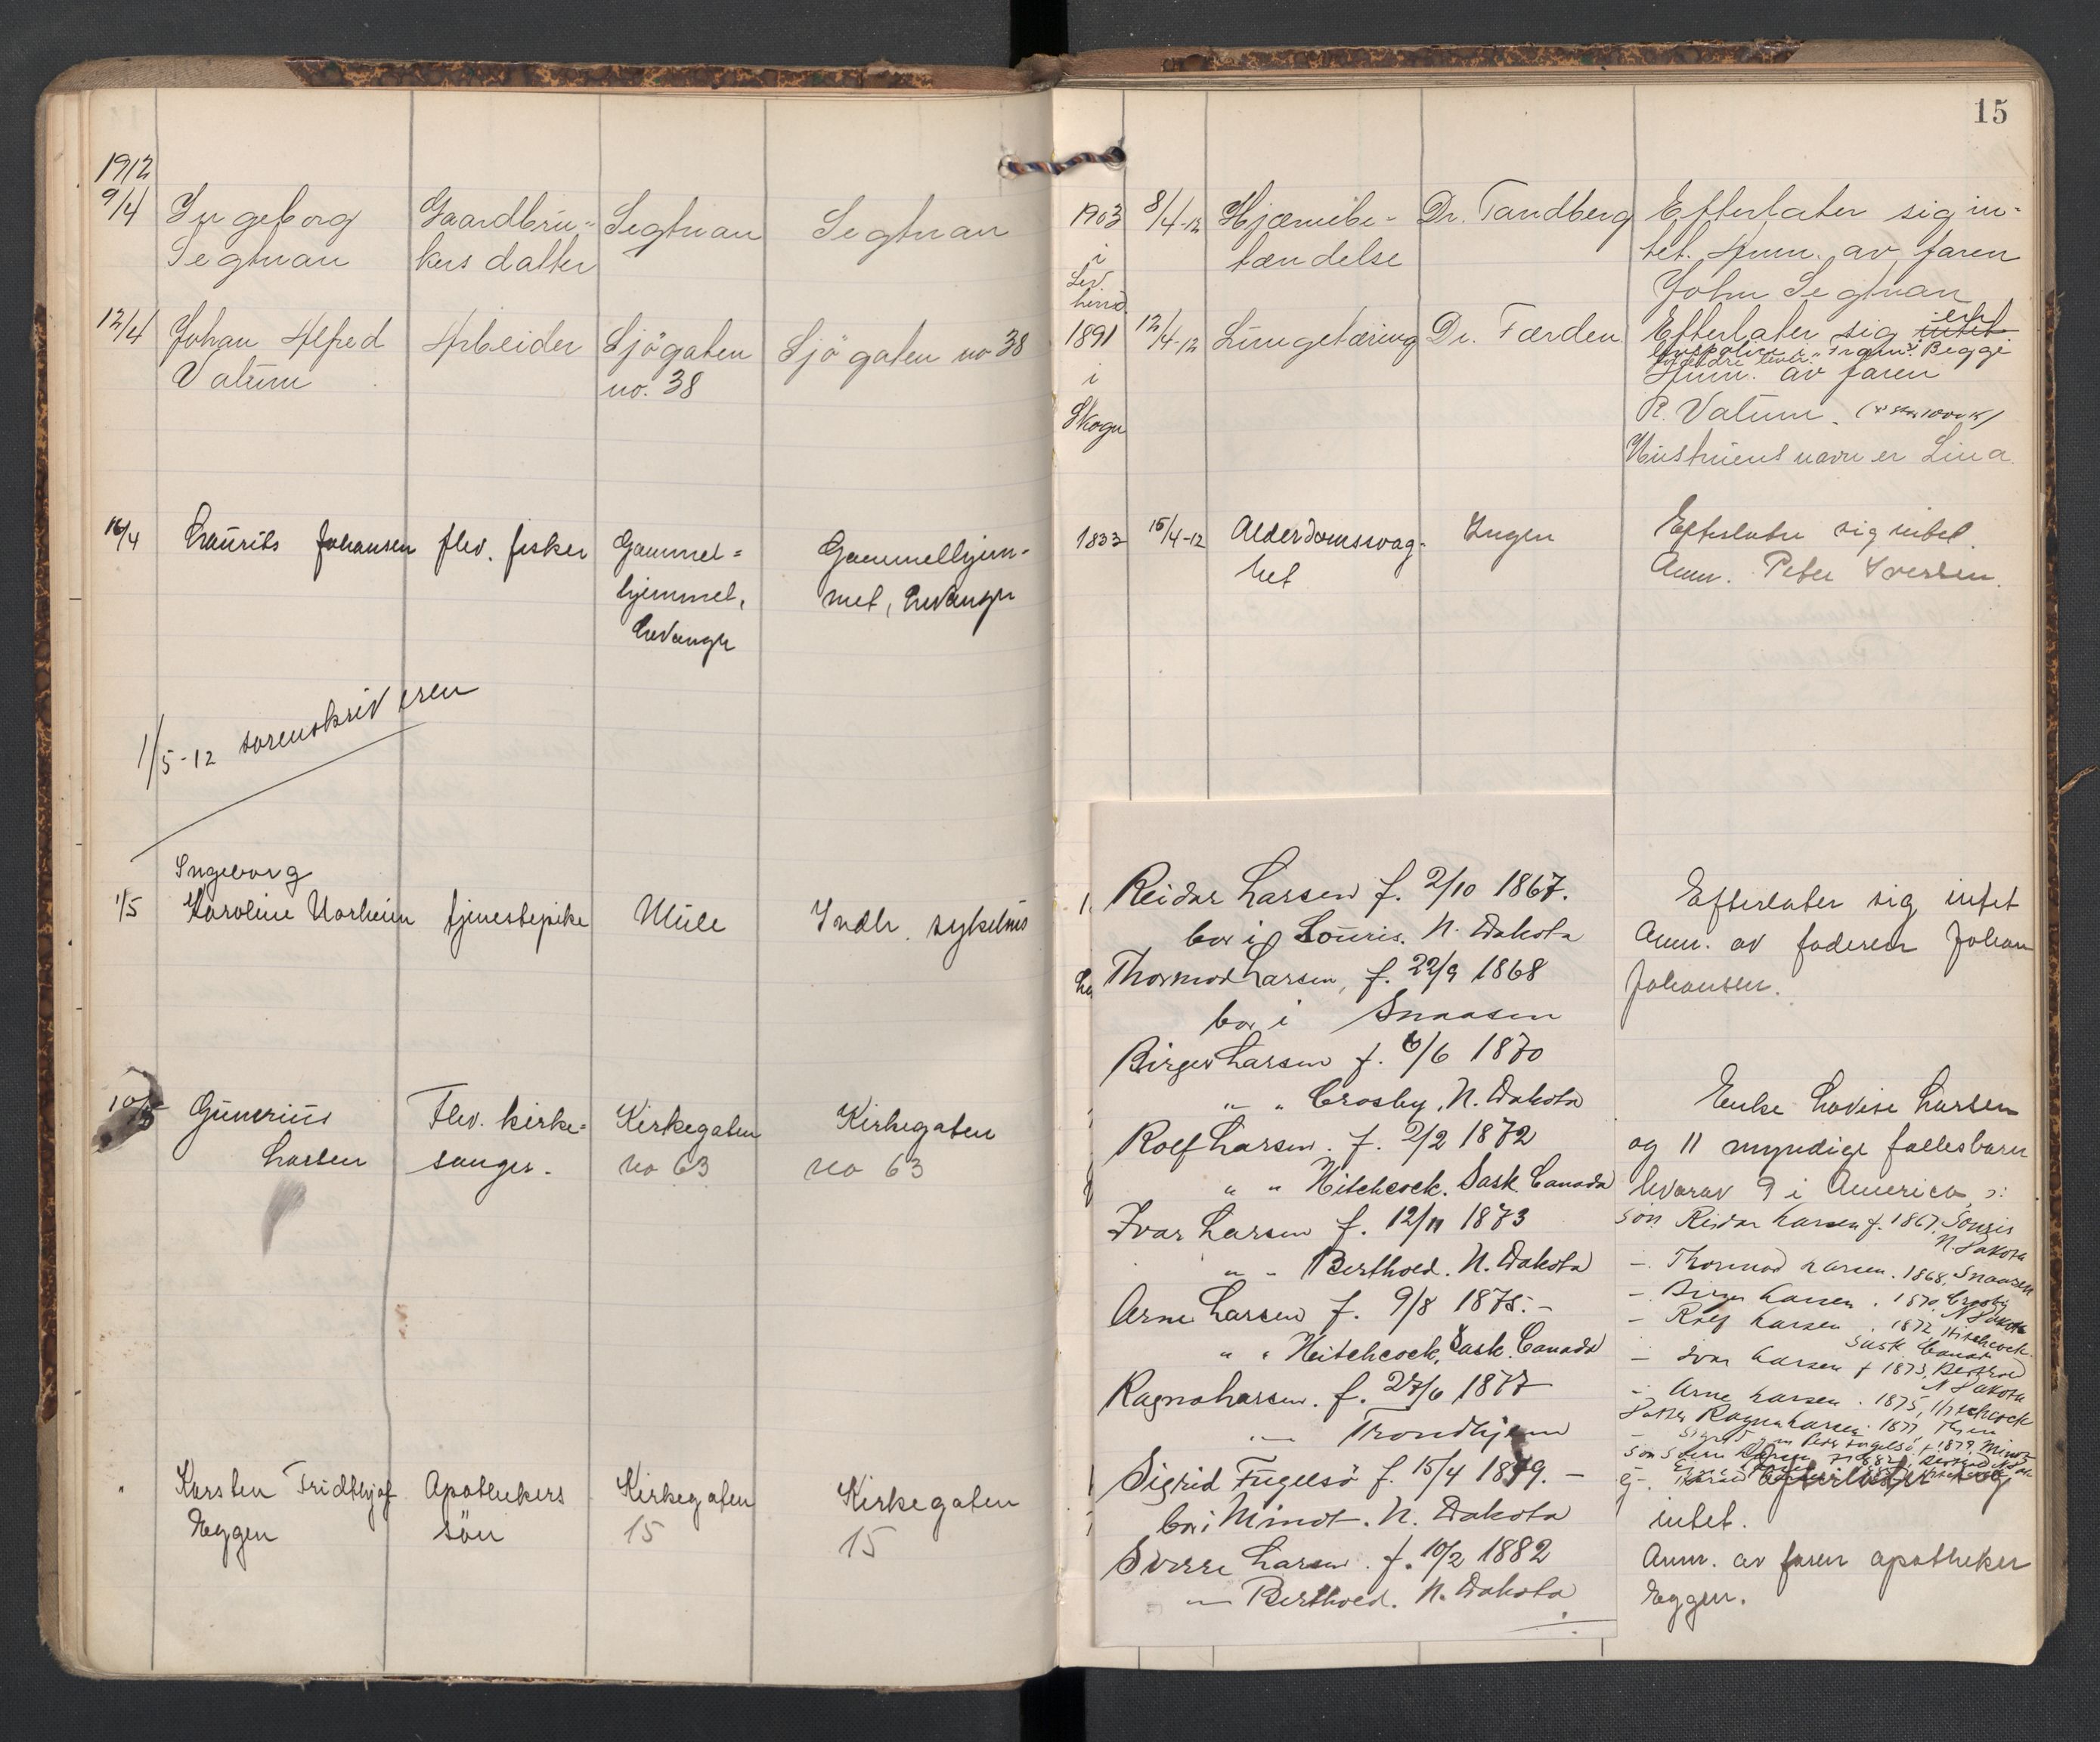 15
1912
9/4 Ingeborg Gaardbru- Segtnan Segtnan
Segtnan kers datter
12/4 Johan Alfred Arbeider Sjögaten Sjögaten no 38
Valum no. 38
16/4 Laurits Johansen flev. fisker Gammel= Gammelhjem-
hjemmet, met, Levanger
Levanger
1/5-12 sorenskriveren
Ingeborg
1/5 Karoline Norheim tjenestepike Mule Indh. sykehus
10/5 Gunerius Flev. kirke= Kirkegaten Kirkegaten
Larsen sanger. no 63 no 63
" Karsten Fridthjof Apothekers Kirkegaten Kirkegaten
Eggen sön 15 15
1903 8/4-12 Hjærnebe- Dr. Tandberg Efterlater sig in-
i tændelse tet. Anm. av faren
Lev. John Segtnan
herred
1891 12/4-12 Lungetæring Dr. Færden Efterlater sig intet
Begge
i Anm. av faren
Skogn R. Valum.
Hustruens navn er Lina.
1833 15/4-12 Alderdomssvag- Ingen Efterlater sig intet.
het Anm. Peter Iversen.
Reidar Larsen f. 2/10 1867.
bor i Souris. N. Dakota
Thormod Larsen, f. 22/9 1868
bor i Snaasen
Birger Larsen f. 6/6 1870
" " Crosby, N. Dakota
Rolf Larsen. f. 2/2 1872
" " Hitchcock. Sask. Canada
Ivar Larsen f. 12/11 1873
" - Berthold. N. Dakota
Arne Larsen f. 9/8 1875. -
" " Heitchcock, Sask. Canada
Ragna Larsen. f. 27/6 1877
" Trondhjem
Sigrid Fugelsö f. 15/4 1879. -
bor i Minot. N. Dakota
Sverre Larsen. f. 10/2 1882
" Berthold. N. Dakota
Efterlater sig intet
Anm. av faderen Johan
Johansen.
Enke Lovise Larsen
og 11 myndige fællesbarn
hvorav 9 i America :
sön Reidar Larsen f. 1867, Souris
N. Dakota
- Thormod Larsen. 1868, Snaasen
- Birger Larsen. 1870, Crosby
N Dakota
- Rolf Larsen. 1872, Hitchcock
Sask Canada
- Ivar Larsen f 1873, Berthold
N Dakota
- Arne Larsen. 1875, Hitchcock
Datter Ragna Larsen 1877, Thjem
Efterlater sig
intet.
Anm. av faren apotheker
Eggen.